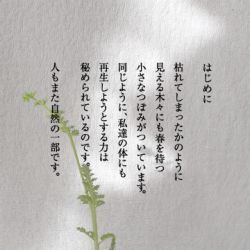 はじめに
枯れてしまったかのように
見える木々にも春を待つ
小さなつぼみがついています。
同じように、私達の体にも
再生しようとする力は
秘められているのです。
人もまた自然の一部です。